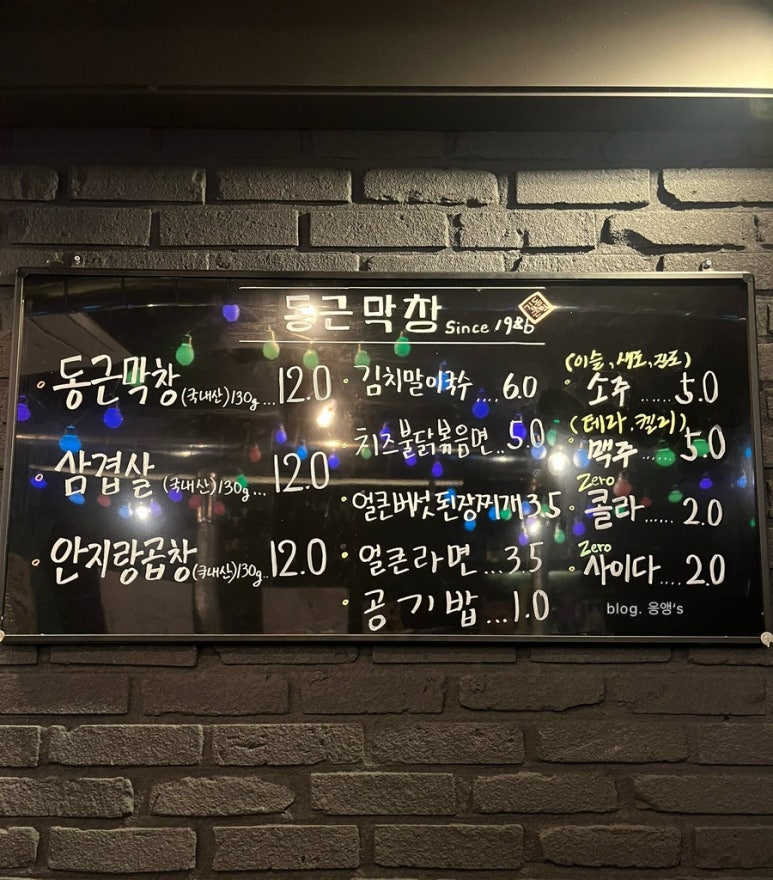 동근막창 Since 1986
동근막창 (국내산) 130g ... 12.0
삼겹살 (국내산) 130g ... 12.0
안지랑곱창 (국내산) 130g .. 12.0
김치말이국수 .... 6.0
치즈불닭볶음면 .. 5.0
얼큰버섯된장찌개 3.5
얼큰라면 ... 3.5
공기밥 ... 1.0
(이슬, 새로, 진로)
소주 ...... 5.0
(테라, 켈리)
맥주 ...... 5.0
Zero
콜라 ...... 2.0
Zero
사이다 .... 2.0
blog. 응앵's